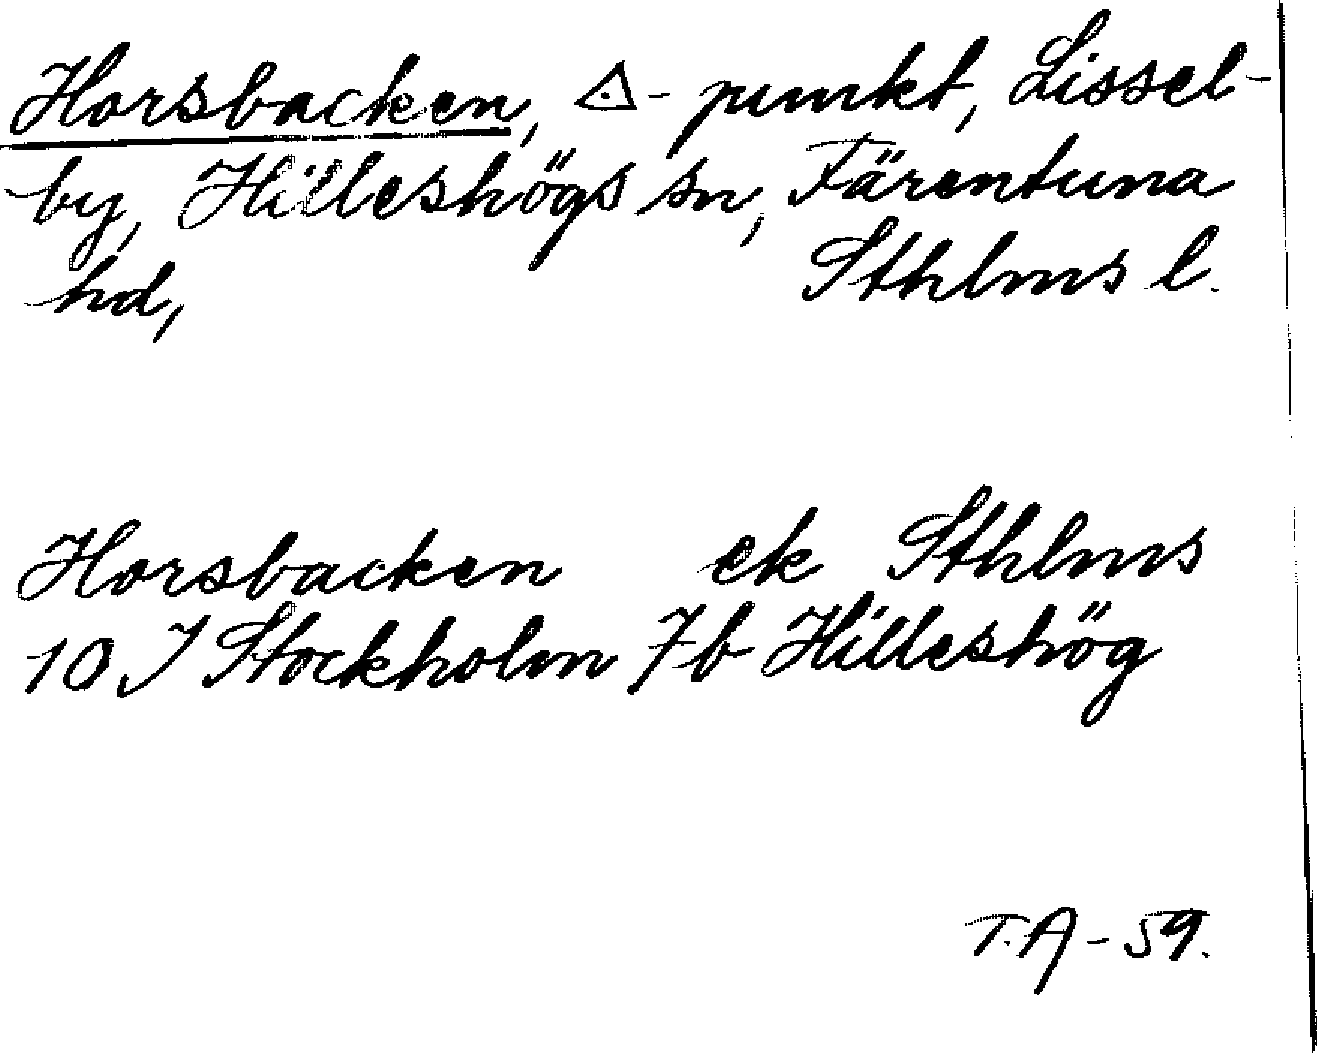 Horsbacken, ◬-punkt, Lissel-
by, Hilleshögs sn, Färentuna
hd, Sthlms l.
Horsbacken ek Sthlms
10 I Stockholm 7b Hilleshög
T.A-59.